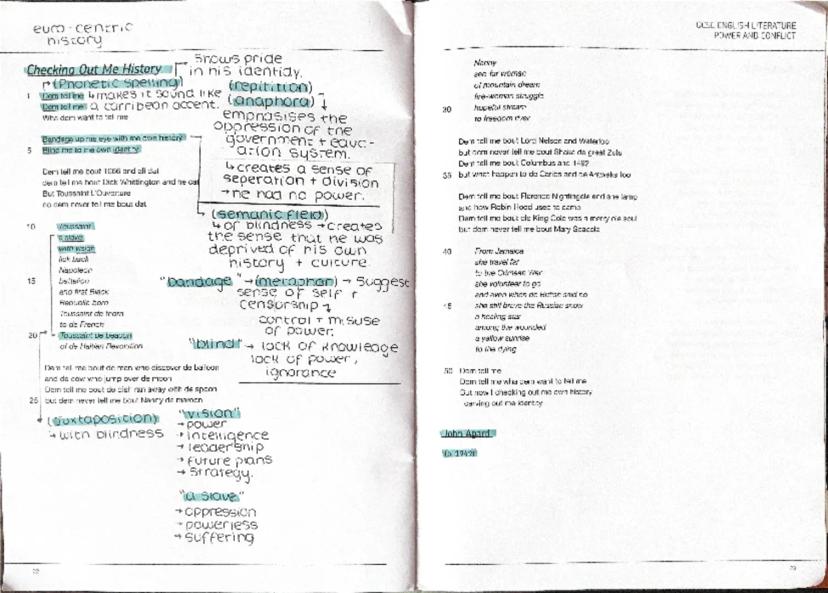 euro-centric
history
Checking Out Me History
Shows pride
in his identidy.
(Phonetic spelling)
↳makes it sound like
a carribean accent.
(repitition)
(anaphora)
emphasises the
oppression of the
government + educ-
ation system.
↳creates a sense of
seperation + division
→he had no power.
1 Dem tell me
Dem tell me
Wha dem want to tell me
Bandage up me eye with me own history
5 Blind me to me own identity
Dem tell me bout 1066 and all dat
dem tell me bout Dick Whittington and he cat
But Toussaint L'Ouverture
no dem never tell me bout dat
(semanic field)
↳of blindness →creates
the sense that he was
deprived of his own
history + culture.
10 Toussaint
a slave
with vision
lick back
Napoleon
15 battalion
and first Black
Republic born
Toussaint de thorn
to de French
20 Toussaint de beacon
of de Haitian Revolution
"bandage" →(metaphor) → suggest
sense of self
censorship
control + misuse
of power.
"blind" → lack of knowledge
lack of power,
ignorance
Dem tell me bout de man who discover de balloon
and de cow who jump over de moon
Dem tell me bout de dish ran away with de spoon
25 but dem never tell me bout Nanny de maroon
(juxtaposition)
→ with blindness
"vision"
→ power
→ intelligence
→ leadership
→ future plans
→ strategy.
"a slave"
→ oppression
→ powerless
→ suffering
22
GCSE ENGLISH LITERATURE
POWER AND CONFLICT
Nanny
see-far woman
of mountain dream
fire-woman struggle
30 hopeful stream
to freedom river
Dem tell me bout Lord Nelson and Waterloo
but dem never tell me bout Shaka de great Zulu
Dem tell me bout Columbus and 1492
35 but what happen to de Caribs and de Arawaks too
Dem tell me bout Florence Nightingale and she lamp
and how Robin Hood used to camp
Dem tell me bout ole King Cole was a merry ole soul
but dem never tell me bout Mary Seacole
40 From Jamaica
she travel far
to the Crimean War
she volunteer to go
and even when de British said no
45 she still brave the Russian snow
a healing star
among the wounded
a yellow sunrise
to the dying
50 Dem tell me
Dem tell me wha dem want to tell me
But now I checking out me own history
I carving out me identity
John Agard
(b. 1949)
23